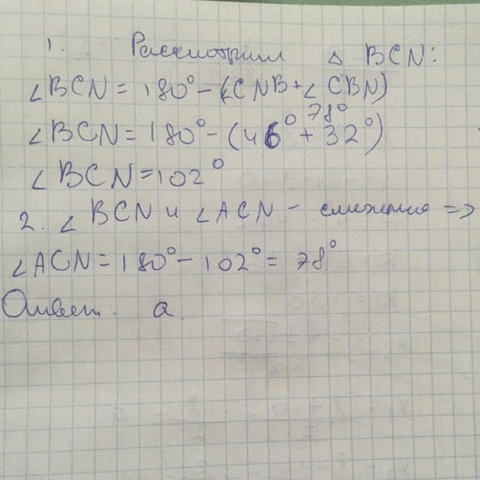 1. Рассмотрим △ BCN:
∠BCN = 180° - (∠CNB + ∠CBN)
78°
∠BCN = 180° - (46° + 32°)
∠BCN = 102°
2. ∠BCN и ∠ACN - смежные =>
∠ACN = 180° - 102° = 78°
Ответ. а.